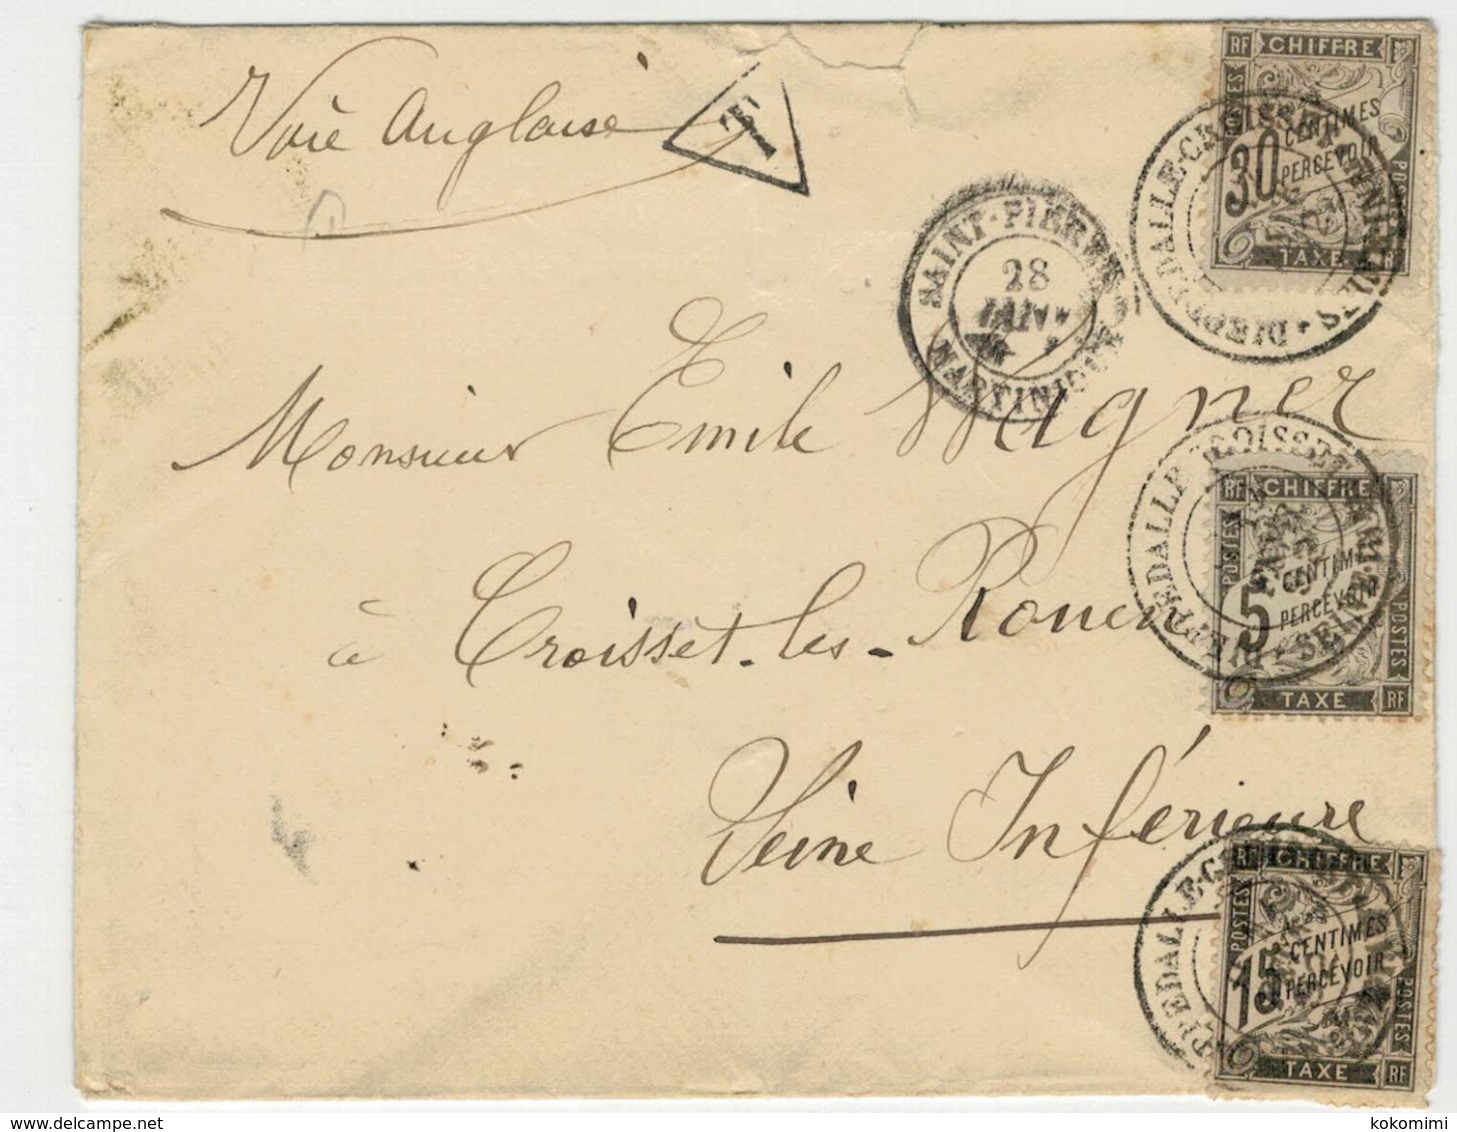 Voie Anglaise
T
SAINT-PIERRE
28
JANV
MARTINIQUE
RF CHIFFRE
POSTES
30 CENTIMES
PERCEVOIR
POSTES
TAXE RF
DIEPPEDALLE-CROISSET
SEINE
Monsieur Emile Wagner
à Croisset-les-Rouen
Seine Inférieure
DIEPPEDALLE CROISSET
SEINE
RF CHIFFRE
POSTES
5 CENTIMES
PERCEVOIR
POSTES
TAXE RF
RF CHIFFRE
POSTES
15 CENTIMES
PERCEVOIR
POSTES
TAXE RF
kokomimi